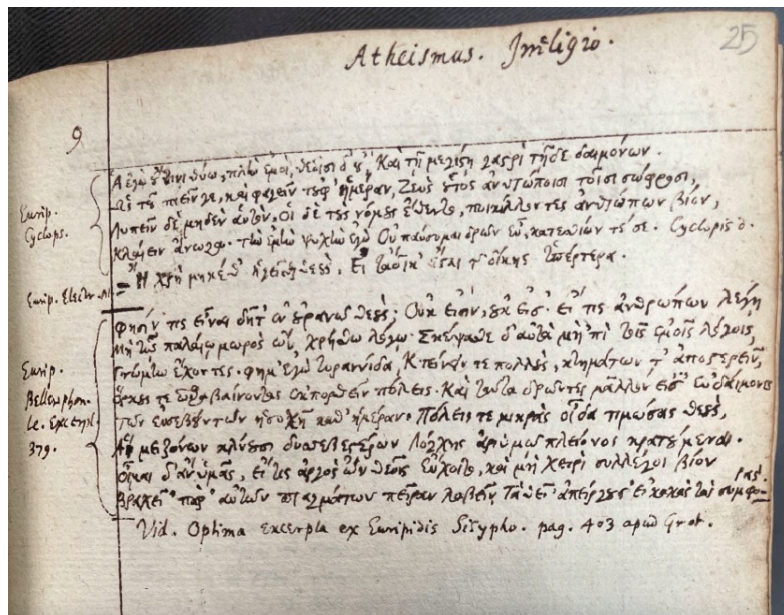 25
Atheismus. Irreligio.
9
Eurip.
Cyclops.
Ἁ ἐγὼ οὔτινι θύω, πλὴν ἐμοὶ, θεοῖσι δ' οὔ, Καὶ τῇ μεγίστῃ γαστρὶ τῇδε δαιμόνων.
Ὡς τὸ πιεῖν γε, καὶ φαγεῖν τοὐφ' ἡμέραν, Ζεὺς οὗτος ἀνθρώποισι τοῖσι σώφροσι,
λυπεῖν δὲ μηδὲν αὑτόν. Οἱ δὲ τοὺς νόμους ἔθεντο, ποικίλλοντες ἀνθρώπων βίον,
Κλαίειν ἄνωγα. τὴν ἐμὴν ψυχὴν ἐγὼ Οὐ παύσομαι δρῶν εὖ, κατεσθίων τέ σε. Cyclopis d.
Eurip. Electr.
Ἢ χρὴ μηκέθ' ἡγεῖσθαι θεοὺς, Εἰ τἄδικ' ἔσται τῆς δίκης ὑπέρτερα.
Eurip.
Bellerophon-
te. Excerpt.
379.
φησίν τις εἶναι δῆτ' ἐν οὐρανῷ θεούς; Οὐκ εἰσὶν, οὐκ εἴσ'. εἴ τις ἀνθρώπων λέγῃ
μὴ τῷ παλαιῷ μωρὸς ὢν χρήσθω λόγῳ. Σκέψασθε δ' αὐτὰ μὴ 'πὶ τοῖς ἐμοῖς λόγοις,
Γνώμην ἔχοντες. φήμ' ἐγὼ τυραννίδα, Κτείνειν τε πολλοὺς, κτημάτων τ' ἀποστερεῖν,
ὅρκους τε παραβαίνοντας ἐκπορθεῖν πόλεις. Καὶ ταῦτα δρῶντες μᾶλλον εἴσ' εὐδαίμονες
τῶν εὐσεβούντων ἡσυχῇ καθ' ἡμέραν. Πόλεις τε μικρὰς οἶδα τιμώσας θεοὺς,
Αἳ μειζόνων κλύουσι δυσσεβεστέρων Λόγχης ἀριθμῷ πλείονος κρατούμεναι.
Οἶμαι δ' ἂν ὑμᾶς, εἴ τις ἀργὸς ὢν θεοῖς εὔχοιτο, καὶ μὴ χειρὶ συλλέγοι βίον
πεῖραν λαβεῖν
συμφο-
ράς.
Vid. Optima excerpta ex Euripidis Sisypho. pag. 403 apud Grot.